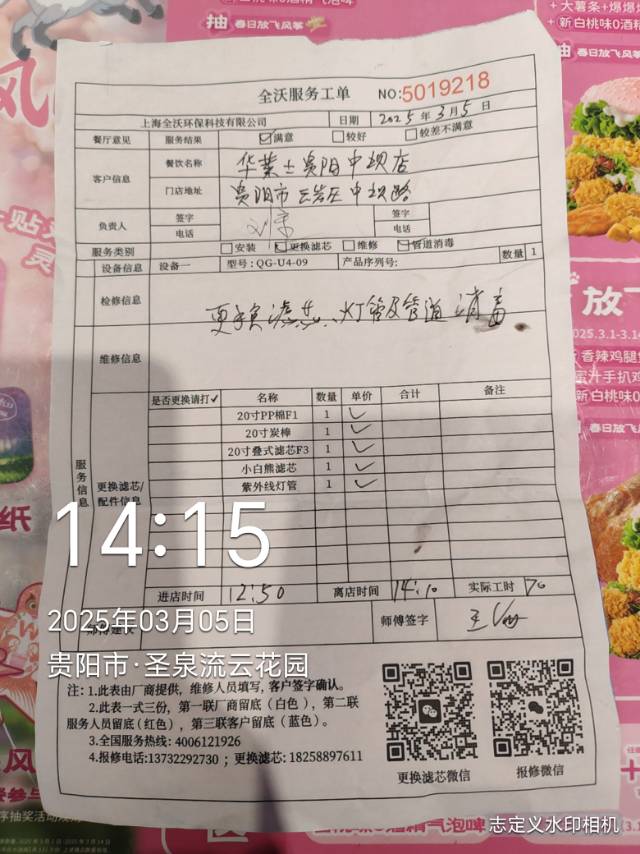 抽 春日放飞风筝
+大薯条+爆爆
+新白桃味0酒精
全沃服务工单 NO:5019218
上海全沃环保科技有限公司 日期 2025年3月5日
餐厅意见 服务结果 ☑满意 □较好 □较差不满意
客户信息 餐饮名称 华莱士贵阳中坝店
门店地址 贵阳市云岩区中坝路
负责人 签字 签字
电话 电话
服务类别 □安装 ☑更换滤芯 □维修 ☑管道消毒
设备信息 设备一 型号:QG-U4-09 产品序列号: 数量 1
检修信息 更换滤芯、灯管及管道消毒
维修信息
服务信息
更换滤芯/配件信息
是否更换请打✓ 名称 数量 单价 合计 备注
20寸PP棉F1 1 ✓
20寸炭棒 1 ✓
20寸叠式滤芯F3 1 ✓
小白熊滤芯 1 ✓
紫外线灯管 1 ✓
进店时间 12:50 离店时间 14:10 实际工时
师傅建议 师傅签字
14:15
2025年03月05日
贵阳市·圣泉流云花园
注:1.此表由厂商提供,维修人员填写,客户签字确认。
2.此表一式三份,第一联厂商留底(白色),第二联
服务人员留底(红色),第三联客户留底(蓝色)。
3.全国服务热线:4006121926
4.报修电话:13732292730;更换滤芯:18258897611
更换滤芯微信 报修微信
放飞
2025.3.1-3.14
香辣鸡腿堡
蜜汁手扒鸡
新白桃味0酒精
春日放飞
志定义水印相机